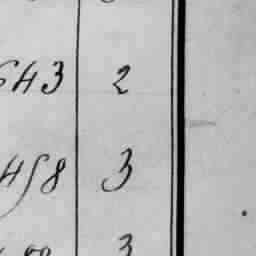 643 2
458 3
3